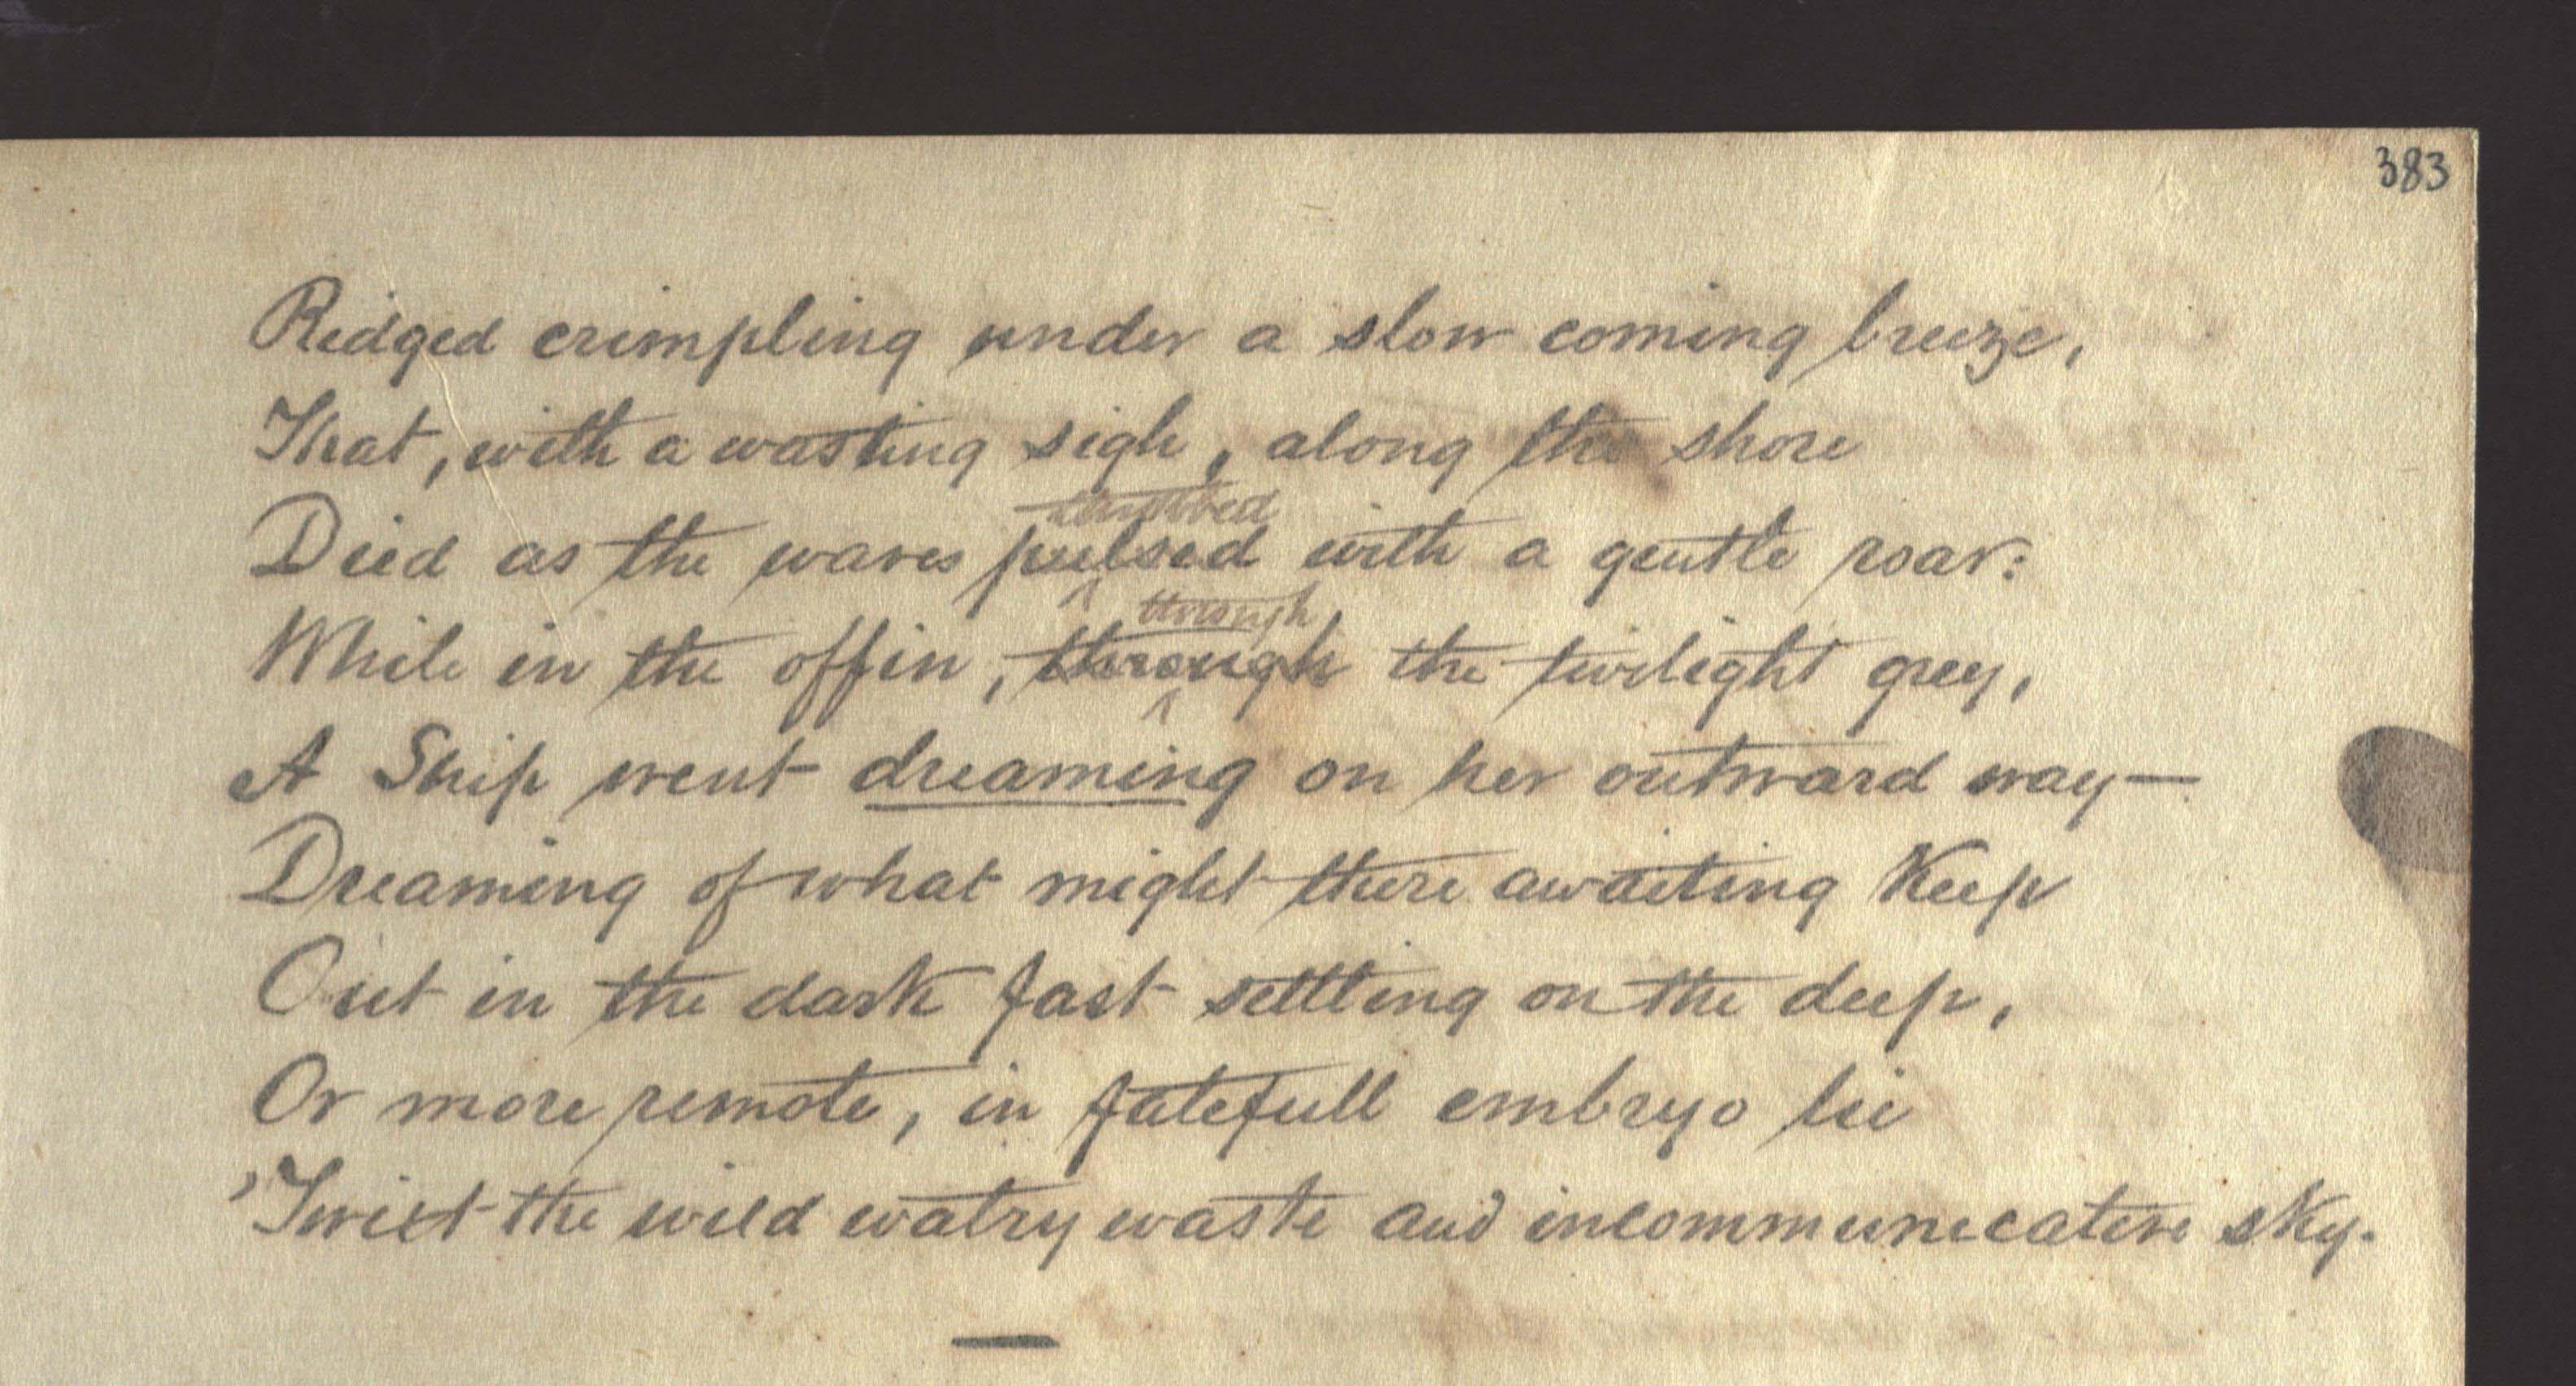 383
Ridged crimpling under a slow coming breeze,
That, with a wasting sigh, along the shore
throbbed
Died as the waves pulsed with a gentle roar:
through
While in the offin, through the twilight grey,
A Ship went dreaming on her outward way—
Dreaming of what might there awaiting Keep
Out in the dark fast settling on the deep,
Or more remote, in fatefull embryo lie
'Twixt the wild watry waste and incommunicative sky.